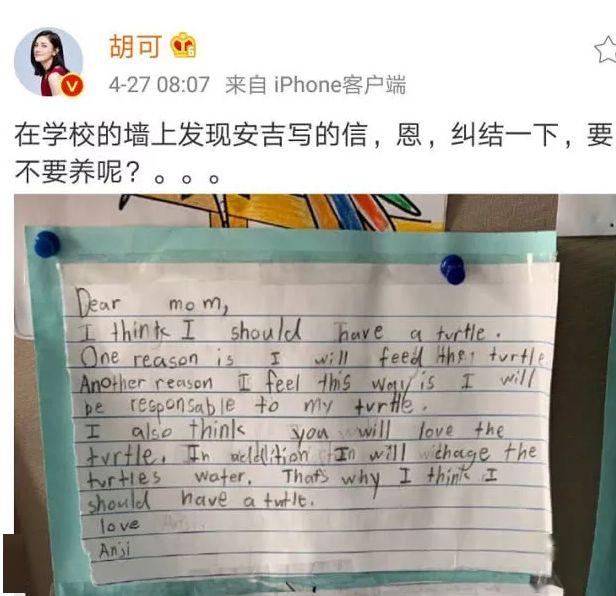 胡可
4-27 08:07 来自 iPhone客户端
在学校的墙上发现安吉写的信，恩，纠结一下，要
不要养呢？。。。
Dear mom,
I think I should have a turtle.
One reason is I will feed the turtle
Another reason I feel this way is I will
be responsable to my turtle.
I also think you will love the
turtle. In addition In will chage the
turtles water. That's why I think I
should have a tutle.
love
Anji